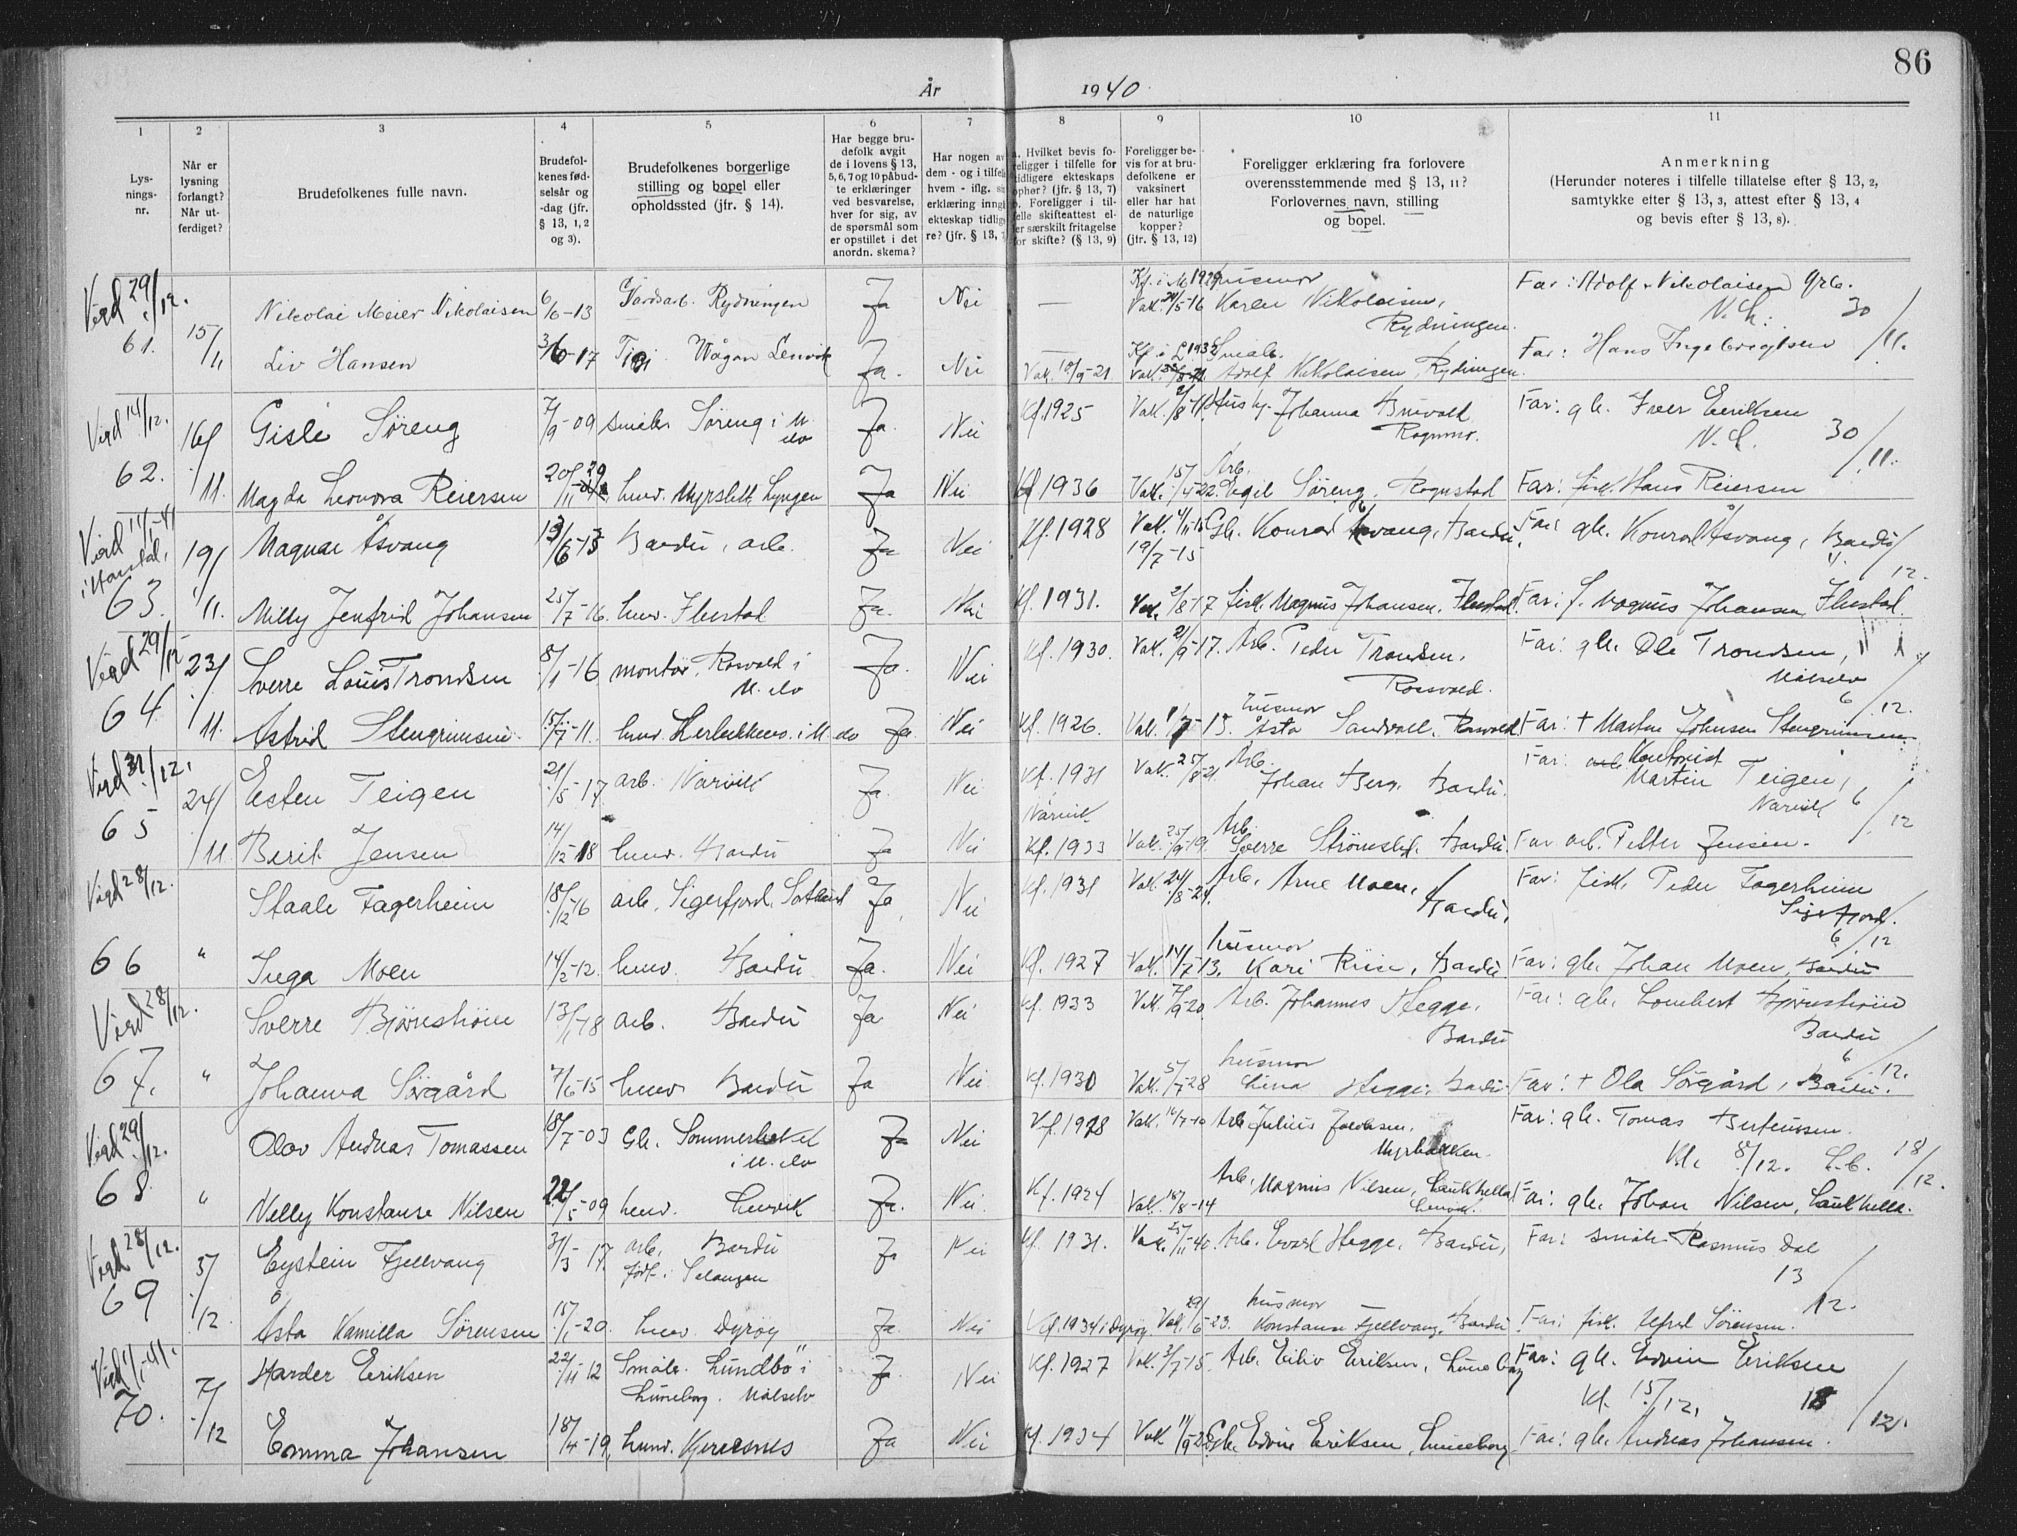 86
År 1940.
1 2 3 4 5 6 7 8 9 10 11
Lys-
nings-
nr.
Når er
lysning
forlangt?
Når ut-
ferdiget?
Brudefolkenes fulle navn.
Brudefol-
kenes fød-
selsår og
-dag (jfr.
§ 13, 1, 2
og 3).
Brudefolkenes borgerlige
stilling og bopel eller
opholdssted (jfr. § 14).
Har begge bru-
defolk avgit
de i lovens § 13,
5, 6, 7 og 10 påbud-
te erklæringer
ved besvarelse,
hver for sig, av
de spørsmål som
er opstillet i det
anordn. skema?
Har nogen av
dem - og i tilfelle
hvem - iflg.
erklæring inngå
ekteskap tidlige-
re? (jfr. § 13, 7
a. Hvilket bevis fo-
religger i tilfelle for
tidligere ekteskaps
ophør? (jfr. § 13, 7)
b. Foreligger i til-
felle skifteattest el-
er særskilt fritagelse
for skifte? (§ 13, 9)
Foreligger be-
vis for at bru-
defolkene er
vaksinert
eller har hat
de naturlige
kopper?
(jfr. § 13, 12)
Foreligger erklæring fra forlovere
overensstemmende med § 13, 11?
Forlovernes navn, stilling
og bopel.
Anmerkning
(Herunder noteres i tilfelle tillatelse efter § 13, 2,
samtykke efter § 13, 3, attest efter § 13, 4
og bevis efter § 13, 8).
Viet 29/12. Nikolai Meier Nikolaisen 6/6-13 Gårdsarb. Rydningen Ja Nei — Kf. i M 1929 Vak. 24/5-16 husmor Karen Nikolaisen, Rydningen. Far: Adolf Nikolaisen Grb.
30/11.
61. 15/11 Liv Hansen 3/6-17 Vågan Lenvik Ja. Nei Vak. 10/9-21 Småb. Adolf Nikolaisen, Rydningen. Far: Hans Ingebrigtsen
Viet 14/12. 16/11. Gisle Søreng 7/9-09 småbr. Søreng i M.elv Ja. Nei Kf. 1925 Johanna Far: gb. Eeriksen
30/11.
62. Magda Leonora Reiersen 20/11 husv. Myrslett Lyngen Ja Nei Kf 1936 Vak. 15/4-22. Arb. Egil Søreng, Rognstad Far: fisk. Hans Reiersen
Viet 11/1-41 i Harstad, 19/11. Magnar Åsvang 13/6-13 Bardu, arb. Ja Nei Kf. 1928 19/7-15 Gb. Konrad Åsvang, Bardu. Far gb. Konrad Åsvang, Bardu
11/12.
63. Milly Jenfrid Johansen 25/7-16 husv. Ibestad Ja. Nei Kf. 1931. Vak. 2/8-17 fisk. Magnus Johansen, Ibestad. Far: f. Magnus Johansen, Ibestad.
Viet 29/12 23/11. Sverre Louis Trondsen 8/1-16 montør, Rosvold i M.elv Ja. Nei Kf. 1930. Vak. 21/9-17. Arb. Peder Trondsen, Rossvold. Far: gb. Ole Trondsen, Målselv
6/12.
64. Astrid Stengrimsen 15/7-11. husv. i M.elv Ja. Nei Kf. 1926. husmor Åsta Sandvoll, Rosvold Far: + Martin Johnsen Stengrimsen
Viet 31/12. 24/11 Eesten Teigen 21/5-17 arb. Narvik Ja. Nei Kf. 1931 Narvik Vak. 25/8-21 Arb. Johan Berg, Bardu. Far: Kontorist Martin Teigen, Narvik
6/12
65 Berit Jensen 14/12-18 husv. Bardu Ja Nei Kf. 1933 Vak. 25/9-19. Arb. Sverre Strømslid, Bardu. Far arb. Petter Jensen.
Viet 28/12. Staale Fagerheim 18/12-16 arb. Sigerfjord, Sortland Ja Nei Kf. 1931 Vak. 24/8-24. Arb. Arne Moen, Bardu. Far: fisk. Peder Fagerheim Sigerfjord.
6/12
66 " Inga Moen 14/2-12. husv. Bardu Ja. Nei Kf. 1927 Vak. 14/7-13. husmor Kari Riise, Bardu Far: gb. Johan Moen, Bardu
Viet 28/12. Sverre Bjørnshøim 13/1-18 arb. Bardu Ja Nei Kf. 1933 Vak. 7/9-20. Arb. Johannes Hegge. Bardu Far: gb. Lombert Bjørnshøim Bardu
6/12.
67. " Johanna Sørgård 7/6-15 husv. Bardu Ja Nei Kf. 1930 Vak. 5/7-28 husmor Hegge, Bardu. Far: + Ola Sørgård, Bardu.
Viet 29/12. Olav Andreas Tomassen 18/7-03 Gb. i M.elv Ja Nei Kf. 1918 Vak. 16/7-10 Arb. Julius Jacobsen, Myrbakken. Far: gb. Tomas Berteussen.
8/12. 18/12.
68. " Nelly Konstanse Nilsen 22/5-09 husv. Lenvik Ja. Nei. Kf. 1924 Vak. 18/8-14 Arb. Magnus Nilsen, Laukhella Lenvik. Far: gb. Johan Nilsen, Laukhella.
Viet 28/12. 5/12. Eystein Fjellvang 31/3-17 arb. Bardu født i Salangen Ja Nei Kf. 1931. Vak. 25/11-40. Arb. Evald Hegge, Bardu, Far: småbr. Rasmus Dal
13/12.
69 Åsta Kamilla Sørensen 15/1-20. husv. Dyrøy Ja Nei Kf. 1934 i Dyrøy Vak. 29/6-23. husmor Konstanse Fjellvang, Bardu Far: fisk. Alfred Sørensen.
Viet 1/1-41. 7/12 Harder Eriksen 22/11-12 Småbr. Lundbo i Luneborg. Målselv Ja. Nei Kf. 1927 Vak. 3/7-15. Arb. Eiliv Eriksen, Luneborg Far: gb. Edvin Eriksen
Kl. 15/12, 18/12.
70. Emma Johansen 18/4-19, husv. Kjerresnes Ja Nei Kf. 1934 Gb. Edvin Eriksen, Luneborg. Far: gb. Andreas Johansen.